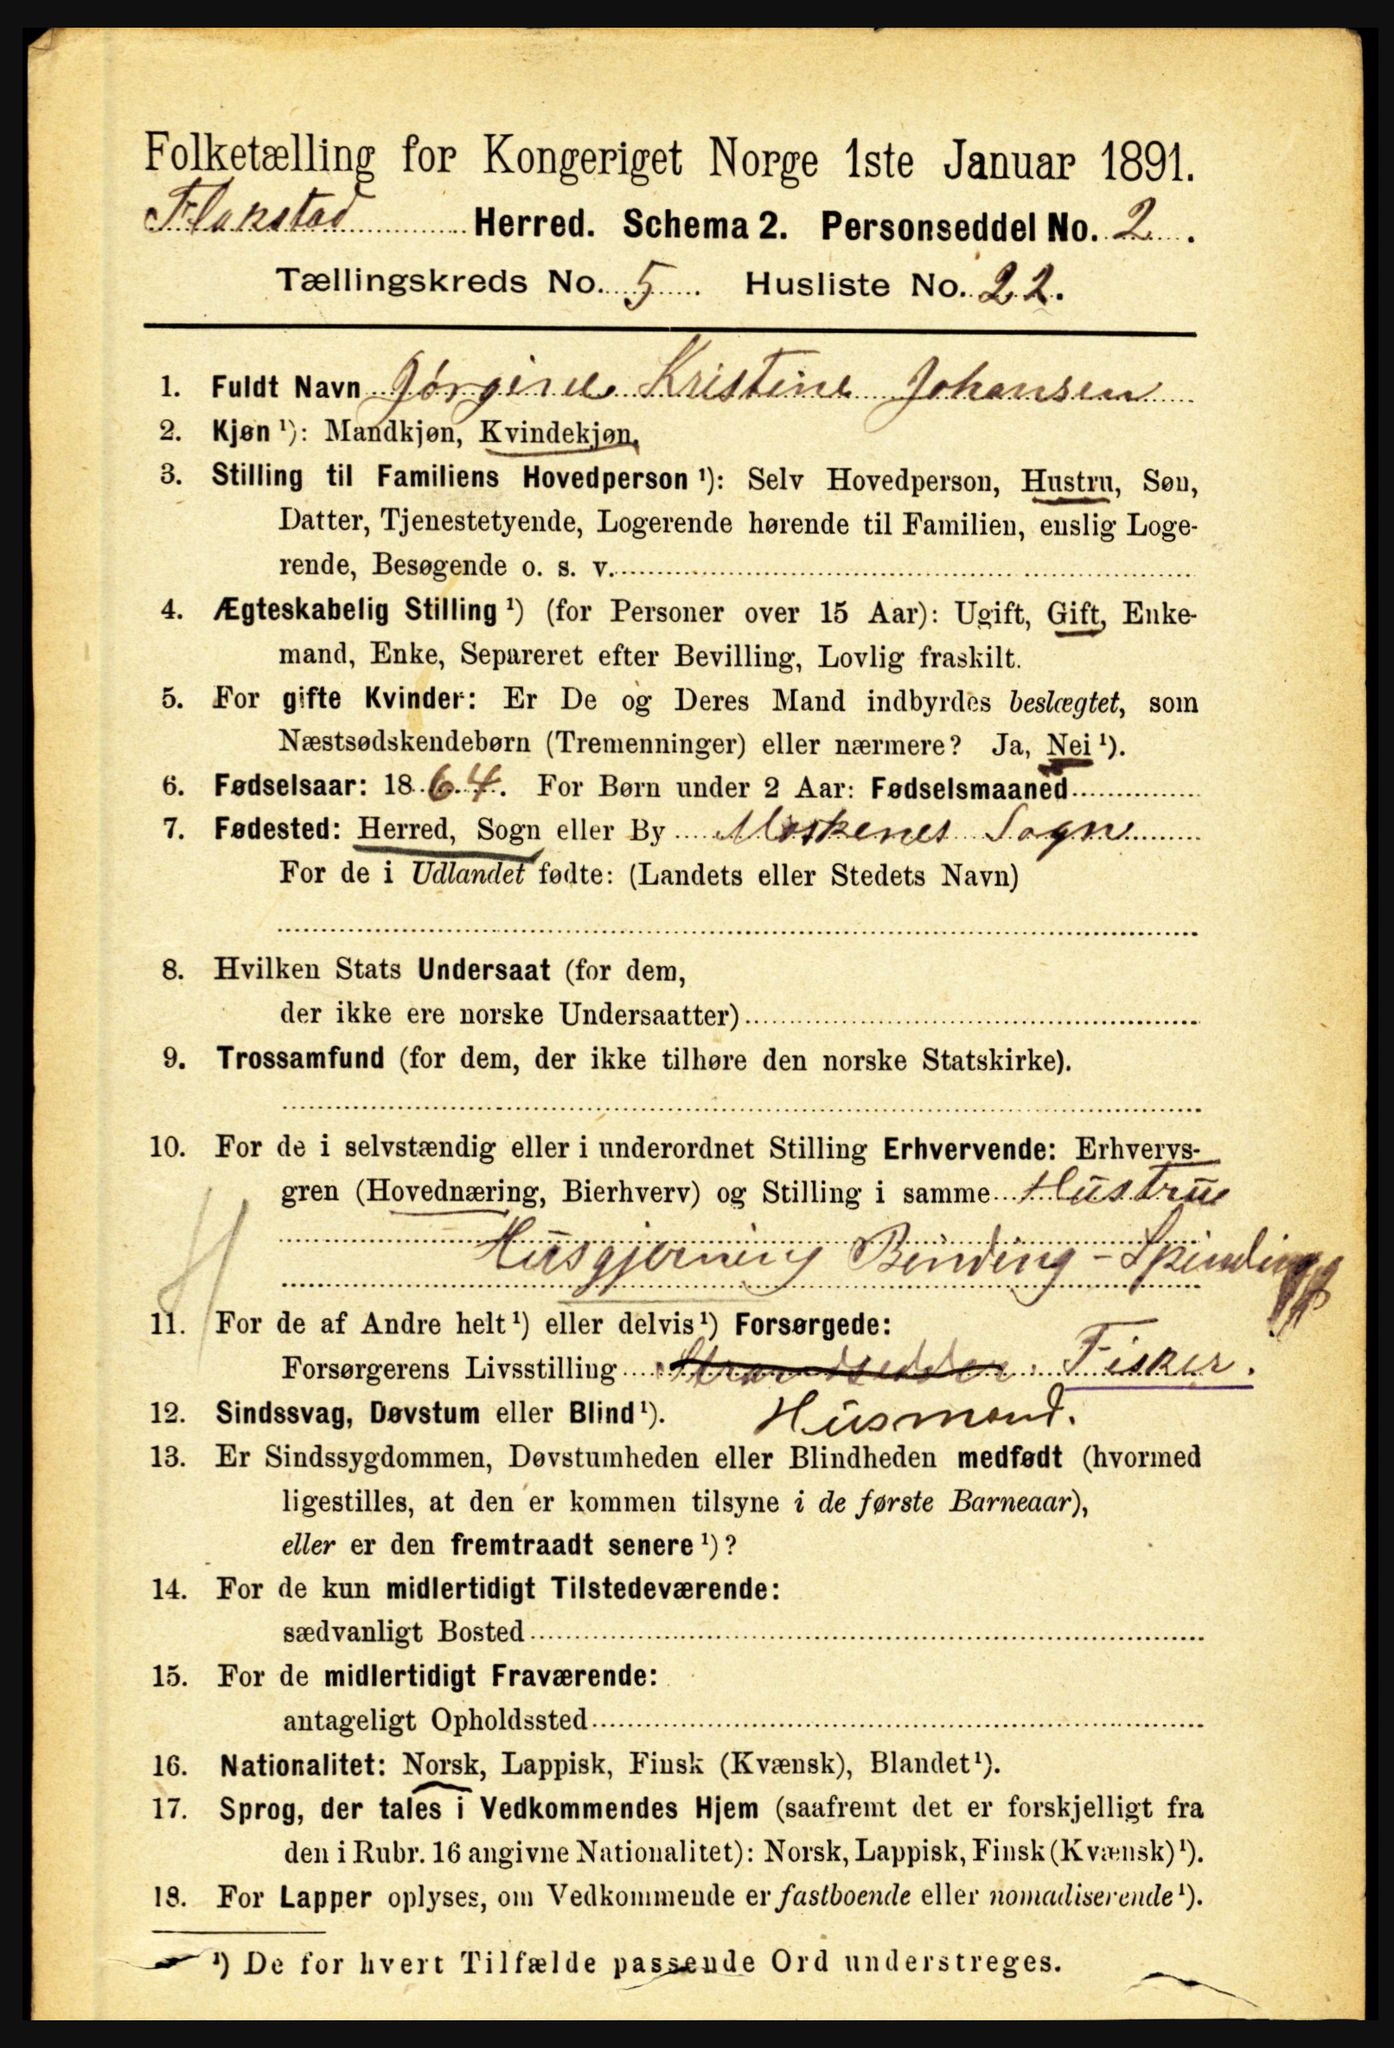 Folketælling for Kongeriget Norge 1ste Januar 1891.
Flakstad Herred. Schema 2. Personseddel No. 2.
Tællingskreds No. 5. Husliste No. 22.
1. Fuldt Navn Jørgine Kristine Johansen
2. Kjøn ¹): Mandkjøn, Kvindekjøn.
3. Stilling til Familiens Hovedperson ¹): Selv Hovedperson, Hustru, Søn,
Datter, Tjenestetyende, Logerende hørende til Familien, enslig Loge-
rende, Besøgende o. s. v.
4. Ægteskabelig Stilling ¹) (for Personer over 15 Aar): Ugift, Gift, Enke-
mand, Enke, Separeret efter Bevilling, Lovlig fraskilt.
5. For gifte Kvinder: Er De og Deres Mand indbyrdes beslægtet, som
Næstsødskendebørn (Tremenninger) eller nærmere? Ja, Nei ¹).
6. Fødselsaar: 1864. For Børn under 2 Aar: Fødselsmaaned
7. Fødested: Herred, Sogn eller By Moskenes Sogn
For de i Udlandet fødte: (Landets eller Stedets Navn)
8. Hvilken Stats Undersaat (for dem,
der ikke ere norske Undersaatter)
9. Trossamfund (for dem, der ikke tilhøre den norske Statskirke).
10. For de i selvstændig eller i underordnet Stilling Erhvervende: Erhvervs-
gren (Hovednæring, Bierhverv) og Stilling i samme Hustrue
Husgjerning Binding - Spinding
11. For de af Andre helt ¹) eller delvis ¹) Forsørgede:
Forsørgerens Livsstilling Strandsedder Fisker.
12. Sindssvag, Døvstum eller Blind ¹). Husmand.
13. Er Sindssygdommen, Døvstumheden eller Blindheden medfødt (hvormed
ligestilles, at den er kommen tilsyne i de første Barneaar),
eller er den fremtraadt senere ¹)?
14. For de kun midlertidigt Tilstedeværende:
sædvanligt Bosted
15. For de midlertidigt Fraværende:
antageligt Opholdssted
16. Nationalitet: Norsk, Lappisk, Finsk (Kvænsk), Blandet ¹).
17. Sprog, der tales i Vedkommendes Hjem (saafremt det er forskjelligt fra
den i Rubr. 16 angivne Nationalitet): Norsk, Lappisk, Finsk (Kvænsk) ¹).
18. For Lapper oplyses, om Vedkommende er fastboende eller nomadiserende ¹).
¹) De for hvert Tilfælde passende Ord understreges.